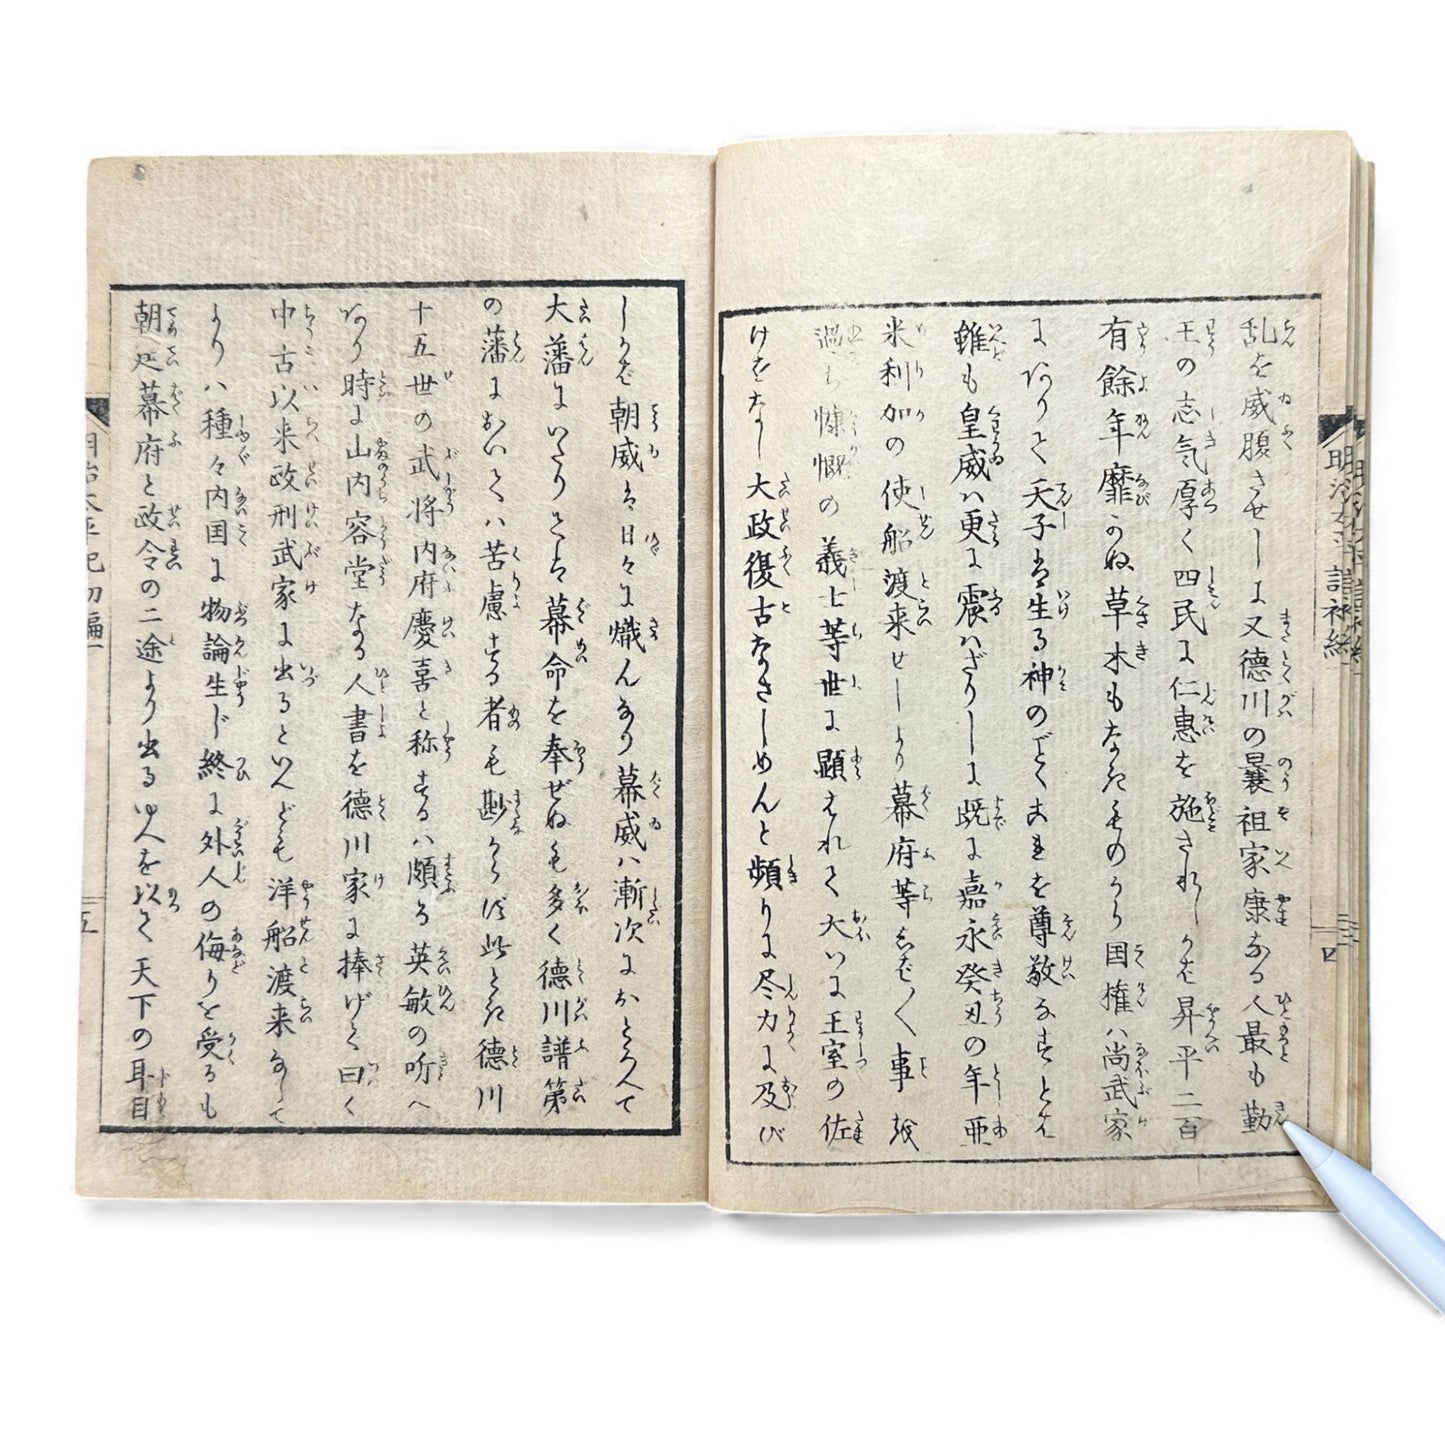 乱を威腹させしに又徳川の曩祖家康なる人最も勤
王の志気厚く四民に仁恵を施されしかば昇平二百
有餘年靡かぬ草木もなきものから国権ハ尚武家
にありて天子は生る神のごとくこれを尊敬なすとせ
雖も皇威ハ更に震ハざりしに既に嘉永癸丑の年亜
米利加の使船渡来せしより幕府等しば〱事
慷慨の義士等世に顕はれて大いに王室の佐
けをなし大政復古なさしめんと頻りに尽力に及び
しかば朝威は日々に熾んなり幕威ハ漸次におとろへて
大藩にいたりては幕命を奉ぜぬも多く徳川譜第
の藩においてハ苦慮する者も尠からず此とき徳川
十五世の武将内府慶喜と称するハ頗る英敏の听へ
あり時に山内容堂なる人書を徳川家に捧げて曰く
中古以来政刑武家に出るといへども洋船渡来なして
よりハ種々内国に物論生じ終に外人の侮りを受るも
朝廷幕府と政令の二途より出るゆへを以て天下の耳目
明治太平記初編一
五
四